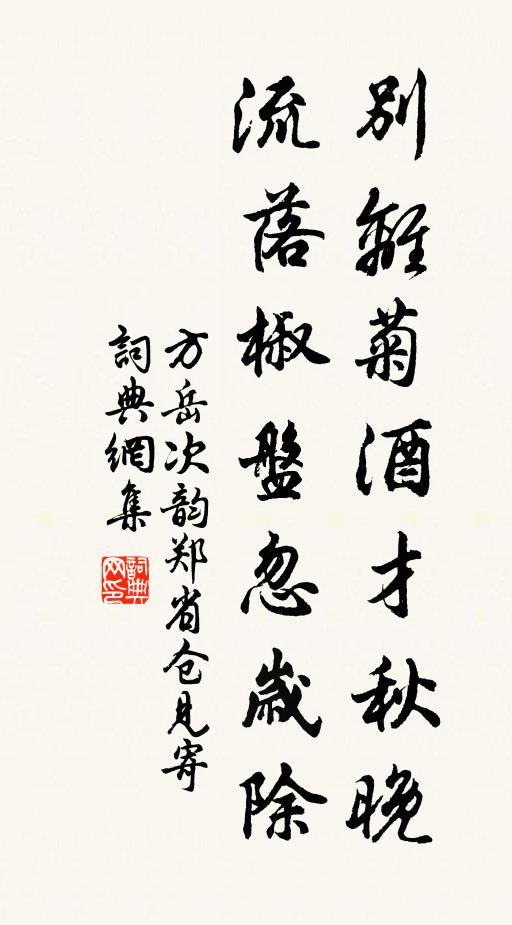 別離菊酒才秋晚
流落椒盤忽歲除
方岳次韵郑省仓見寄
詞典網集
詞典网印